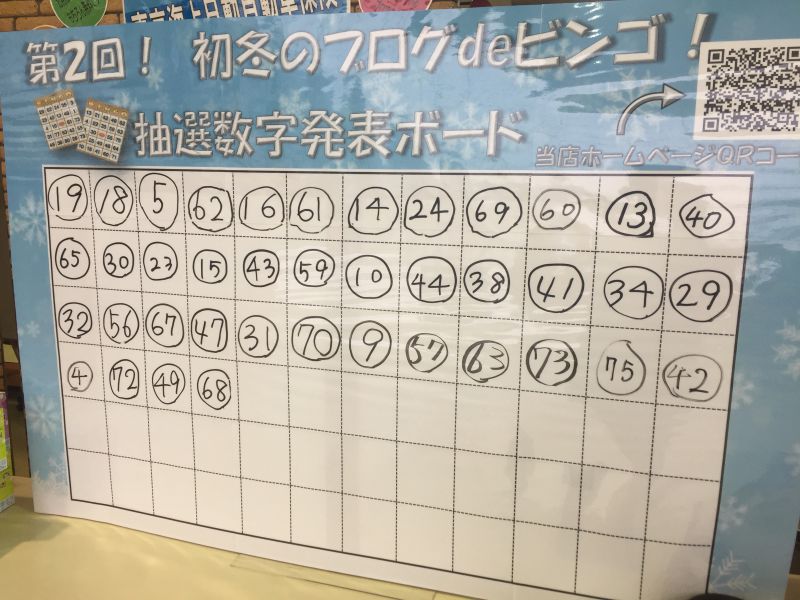 東京海上日動自動車保険
第2回！ 初冬のブログdeビンゴ！
抽選数字発表ボード
当店ホームページQRコー
19 18 5 62 16 61 14 24 69 60 13 40
65 30 23 15 43 59 10 44 38 41 34 29
32 56 67 47 31 70 9 57 63 73 75 42
4 72 49 68